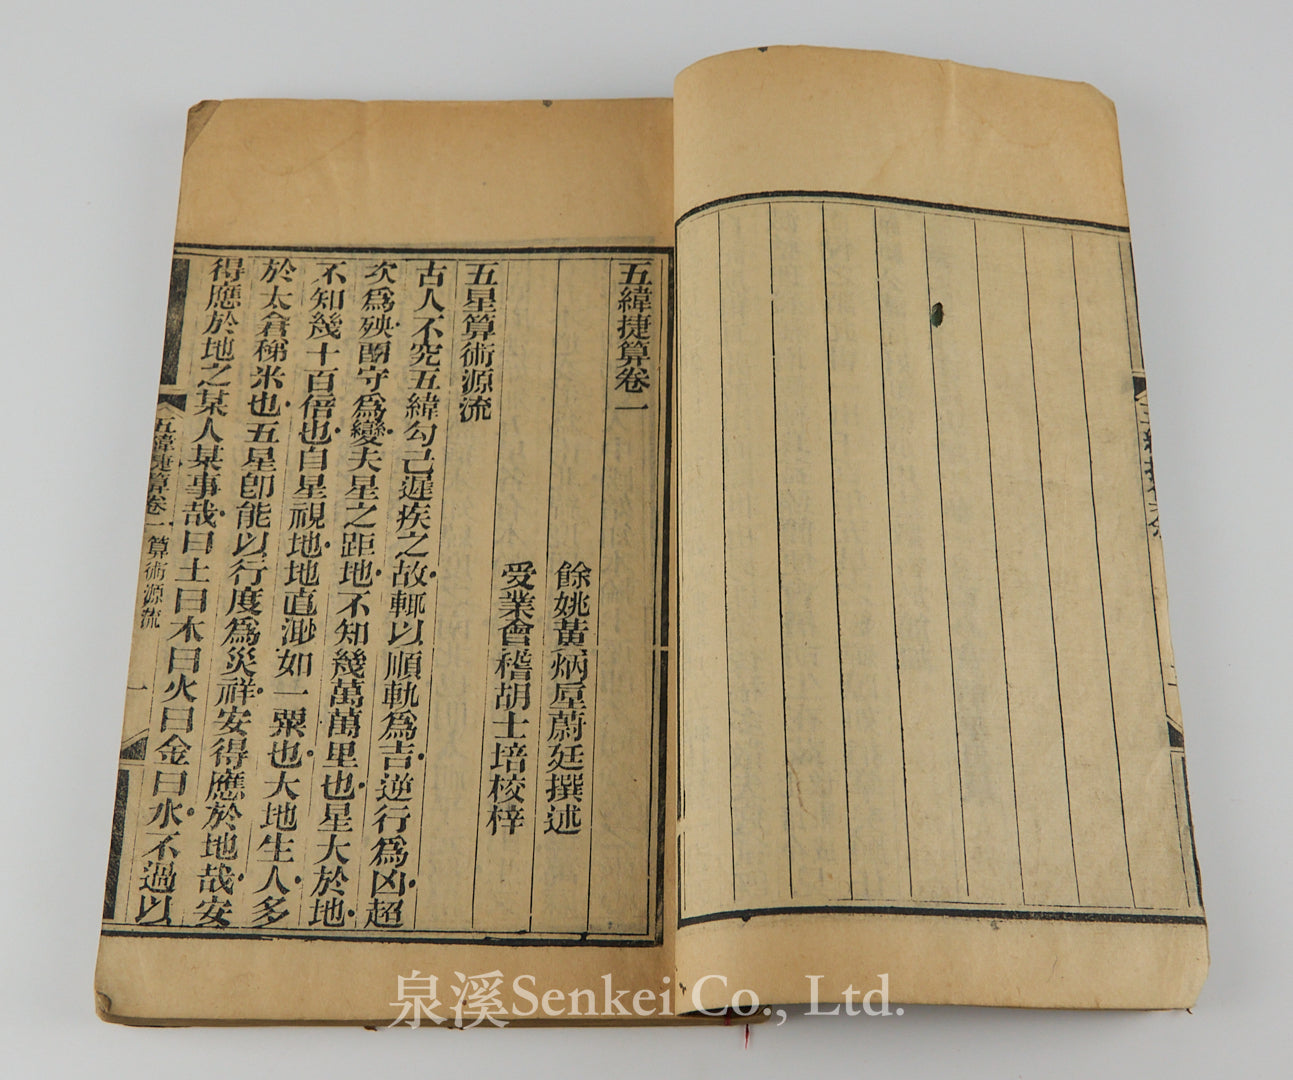 五緯捷算卷一
餘姚黃炳垕蔚廷撰述
受業會稽胡士培校梓
五星算術源流
古人不究五緯勾己遲疾之故輒以順軌爲吉逆行爲凶超
次爲殃鬭守爲變夫星之距地不知幾萬萬里也星大於地
不知幾十百倍也自星視地地直渺如一粟也大地生人多
於太倉稊米也五星卽能以行度爲災祥安得應於地哉安
得應於地之某人某事哉曰土曰木曰火曰金曰水不過以
五緯捷算卷一 算術源流 一
泉溪Senkei Co., Ltd.